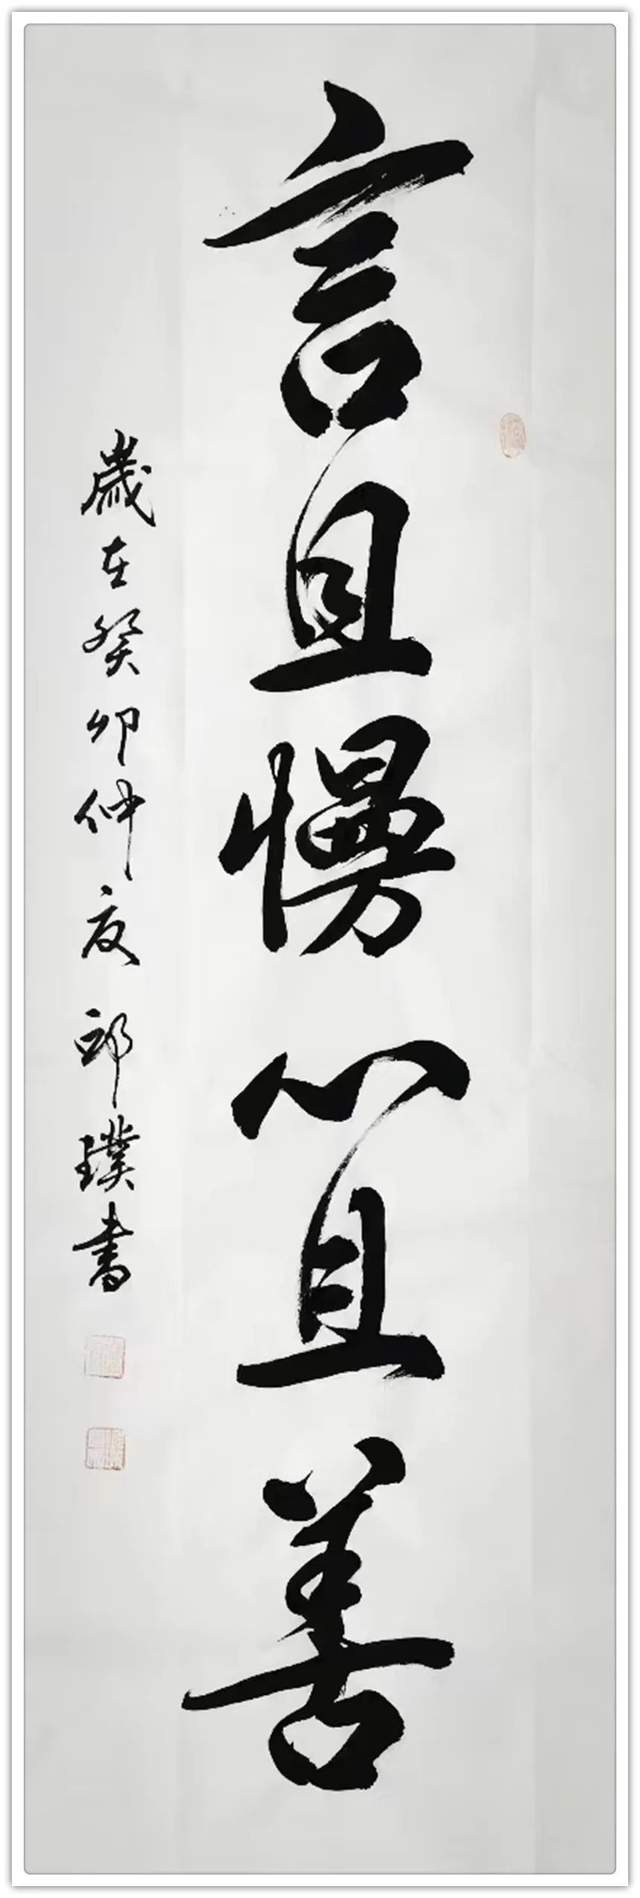 言且慢心且善
歲在癸卯仲夏邱璞書